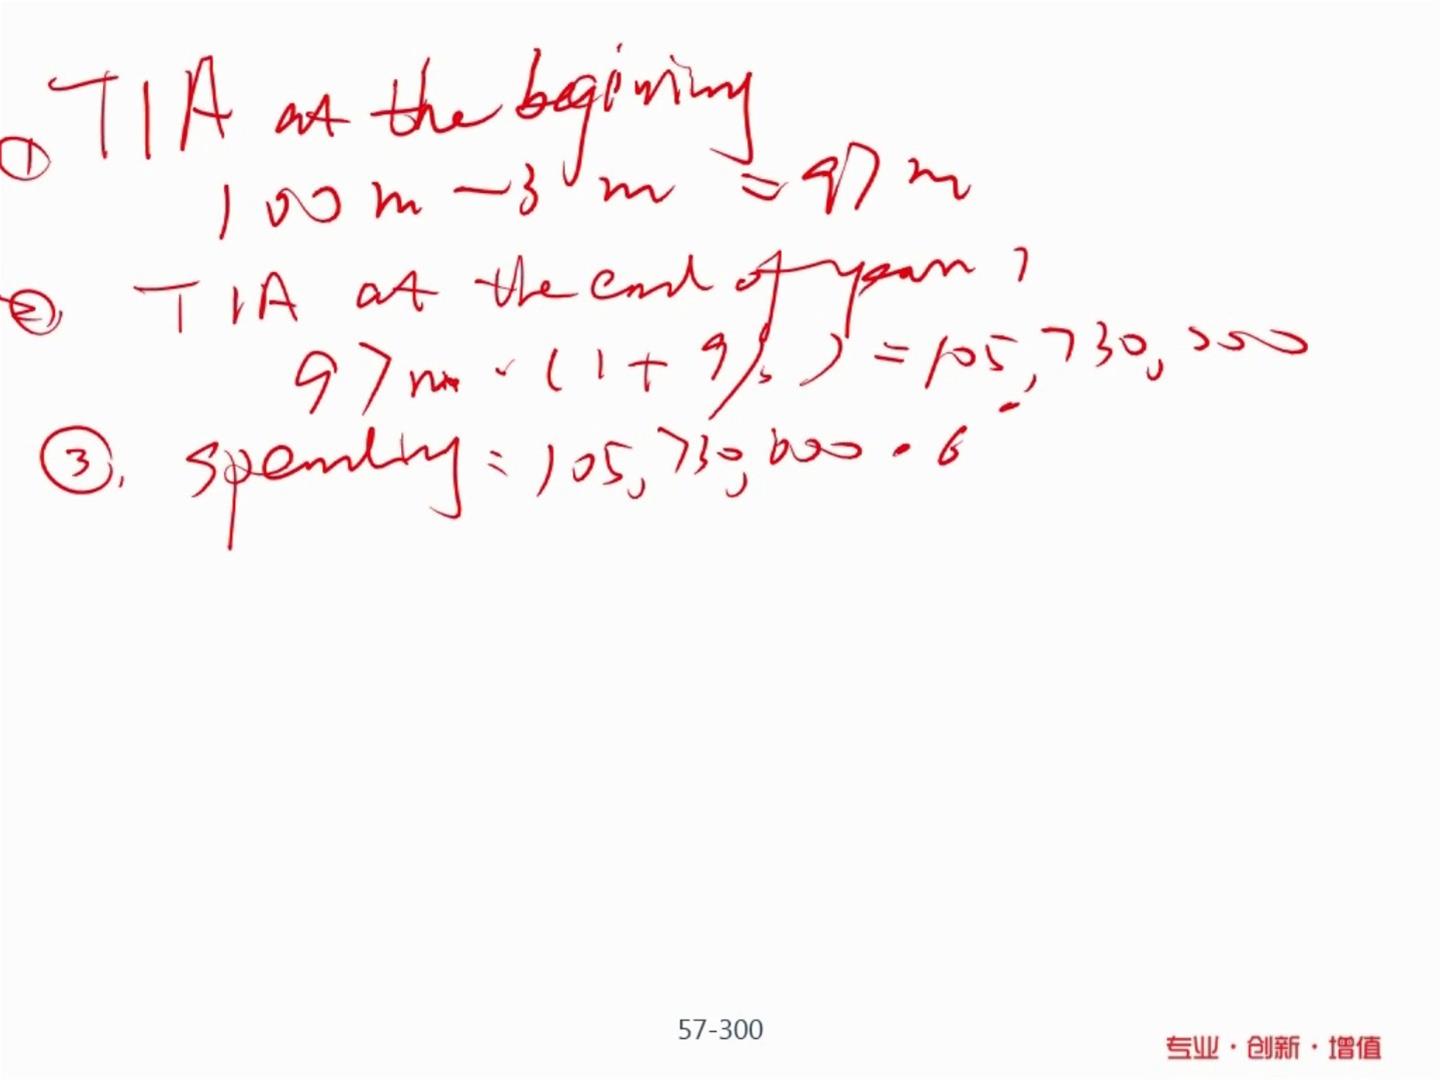 ① TIA at the begining
100m - 3m = 97m
②. TIA at the end of year 1
97m · (1 + 9%) = 105,730,000
③. spending = 105,730,000 · 6
57-300
专业·创新·增值